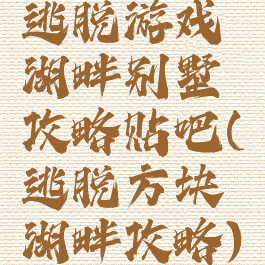 逃脱游戏
湖畔别墅
攻略贴吧(
逃脱方块
湖畔攻略)